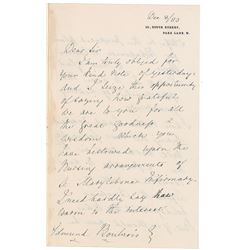 Dec 4/83
10, SOUTH STREET,
PARK LANE, W.
Dear Sir
I am truly obliged for
your kind note of yesterday
and I seize this opportunity
of saying how grateful
we are to you for all
the great goodness &
wisdom which you
have bestowed upon the
Nursing arrangements of
Marylebone Infirmary.
I need hardly say
warm is the interest
Edmund Boulnois